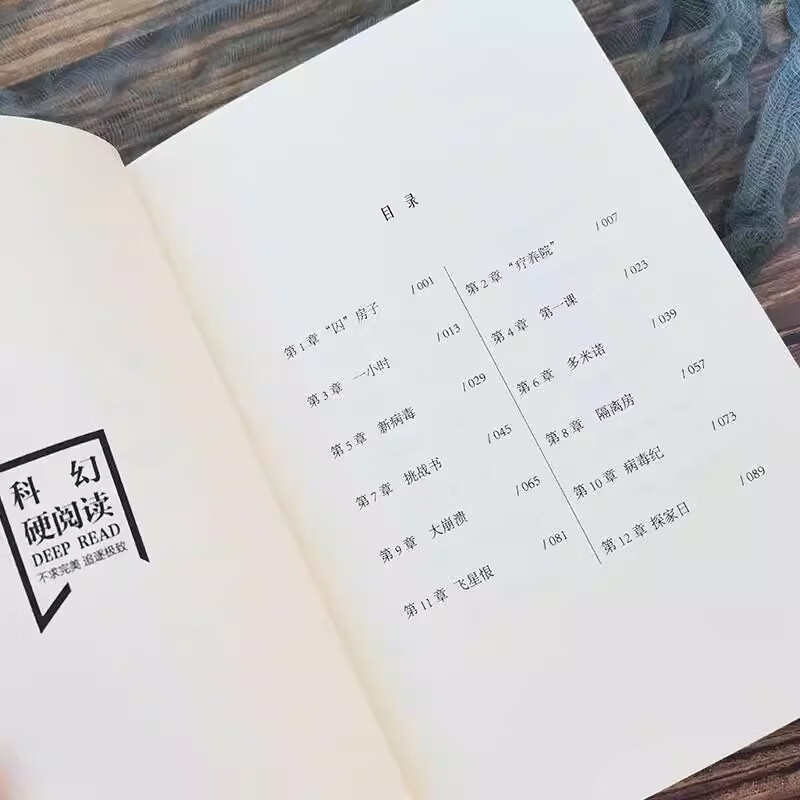 科 幻
硬阅读
DEEP READ
不求完美 追逐极致
目 录
第 1 章 “囚”房子 / 001
第 2 章 “疗养院” / 007
第 3 章 一小时 / 013
第 4 章 第一课 / 023
第 5 章 新病毒 / 029
第 6 章 多米诺 / 039
第 7 章 挑战书 / 045
第 8 章 隔离房 / 057
第 9 章 大崩溃 / 065
第 10 章 病毒纪 / 073
第 11 章 飞星恨 / 081
第 12 章 探家日 / 089